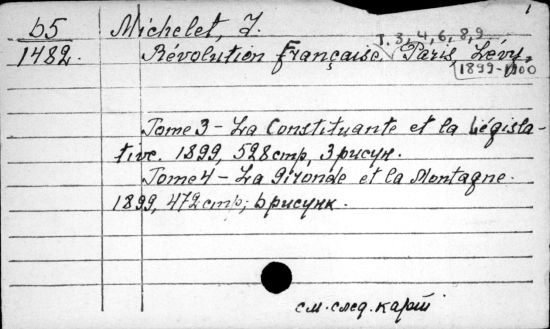 1
b5
1482.
Michelet, J.
T. 3, 4, 6, 8, 9
Révolution Française. Paris, Lévy,
1899-1900
Tome 3 - La Constituante et la Législa-
tive. 1899, 528 стр, 3 рисун.
Tome 4 - La Gironde et la Montagne.
1899, 472 стр; 6 рисунк.
см. след. карт